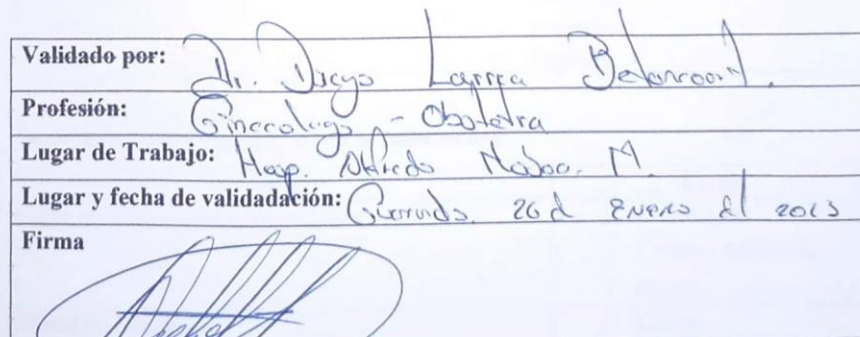 Validado por: Dr. Diego Larrea Betancourt.
Profesión: Ginecologo - Obstetra
Lugar de Trabajo: Hosp. Alfredo Noboa. M.
Lugar y fecha de validadación: Guaranda. 26 d Enero del
Firma